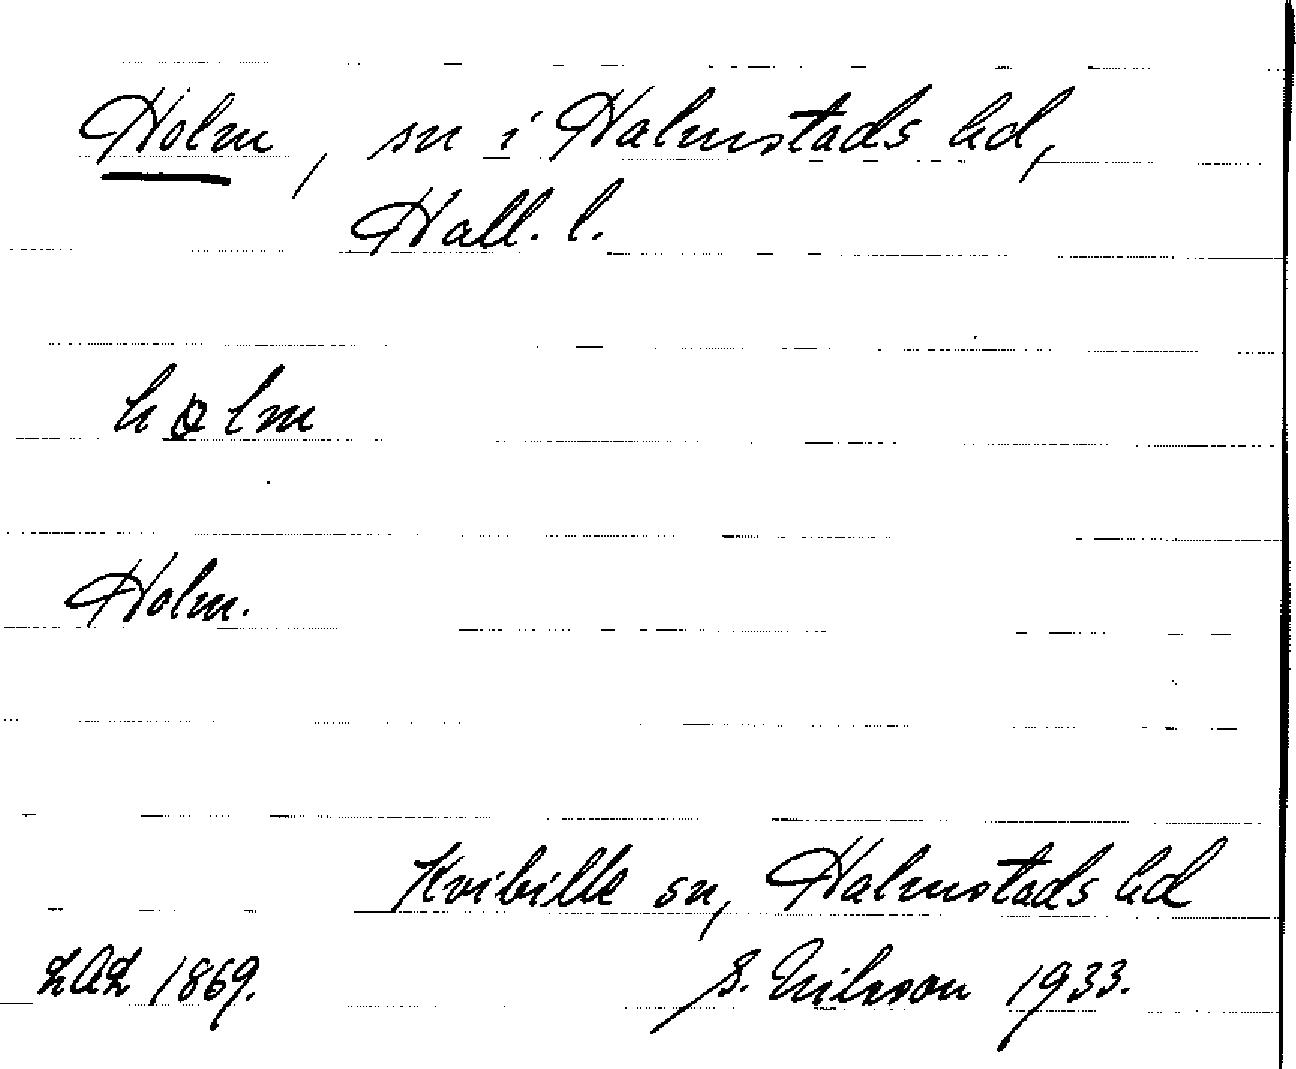 Holm, sn i Halmstads hd,
Hall. l.
holm
Holm.
Kvibille sn, Halmstads hd
LAL 1869. S. Nilsson 1933.